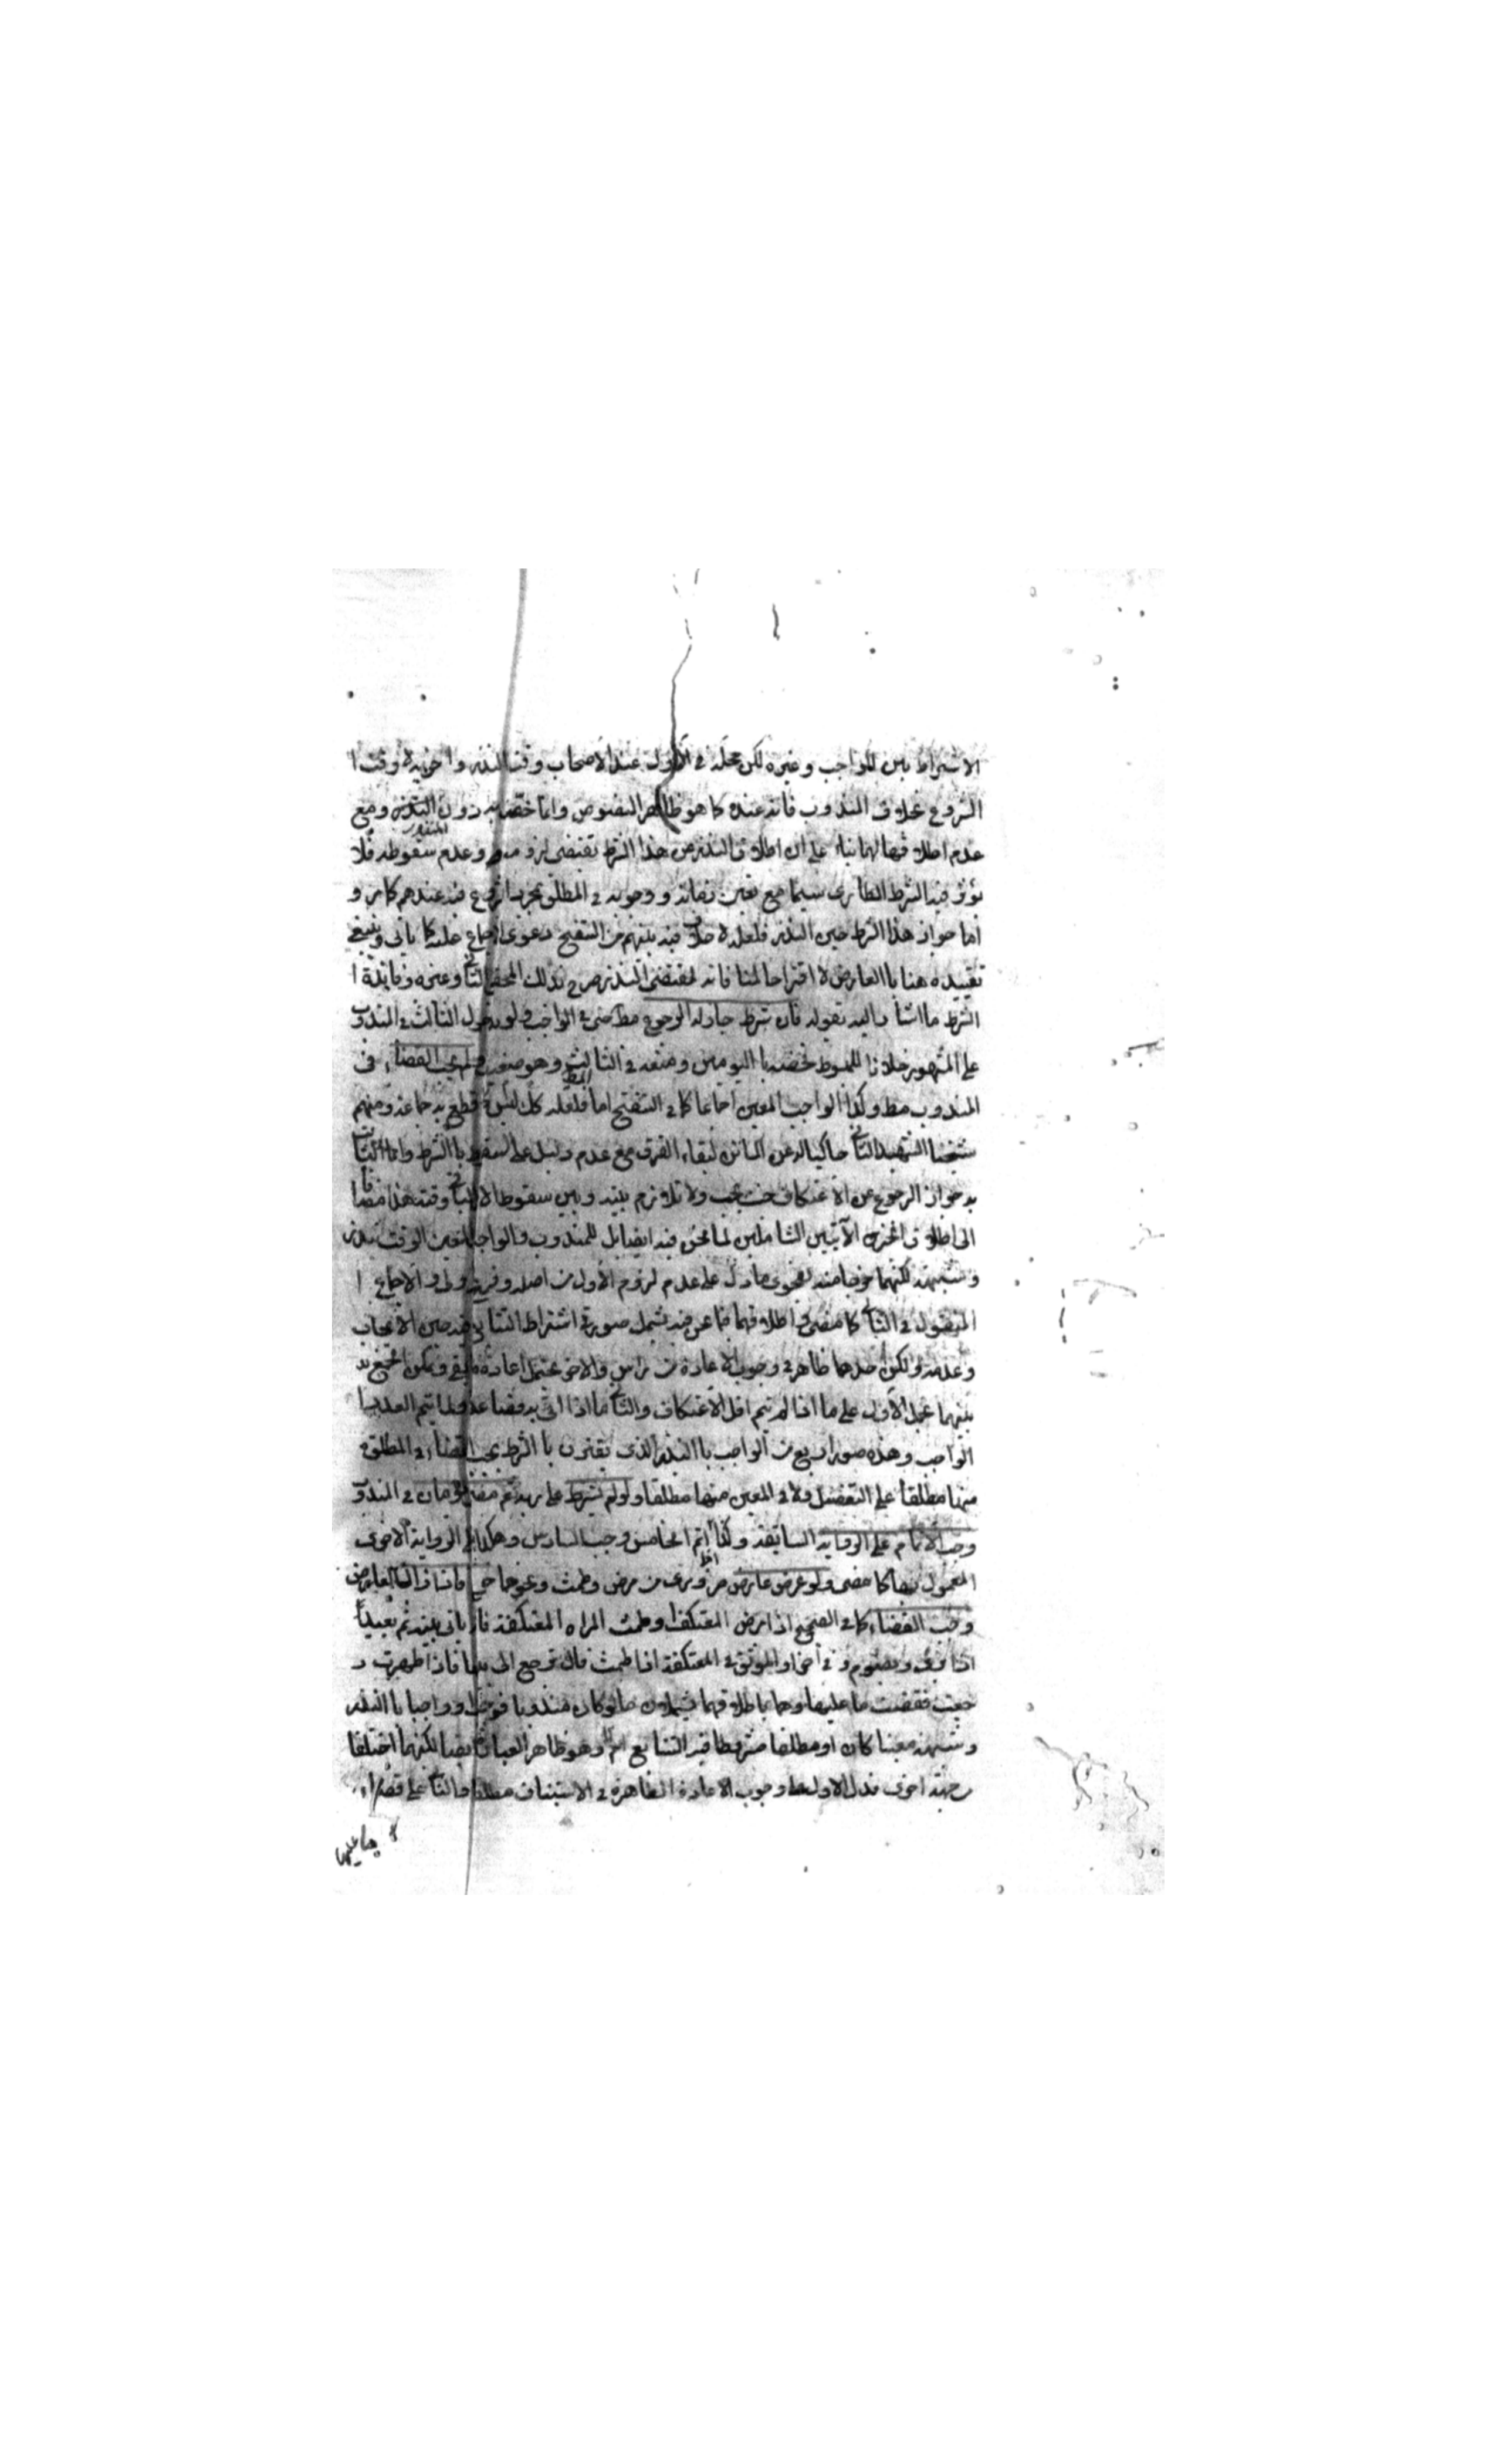 الاشتراط بين الواجب وغيره لكن محله في الاول عند الاصحاب وقت النذر واخويه لا وقت ا
الشروع بخلاف المندوب فانه عنده كما هو ظاهر النصوص وانما خصنا به دون النذر ومع
عدم اطلاقها لهما بناء على ان اطلاق النذر من هذا الشرط يقتضي لزوم المنذور وعدم سقوطه فلا
يؤثر فيه الشرط الطاري سيما مع تعين زمانه ووجوبه في المطلق بمجرد الشروع فيه عندهم كما مر و
اما جواز هذا الشرط حين النذر فلعله لا خلاف فيه بينهم من التنقيح دعوى الاجماع عليه كما ياتي وينبغي
تقييده هنا باالعارض لا اقتراحا لمنافاته لمقتضى النذر صرح بذلك المحقق الثاني وغيره وفايدة ا
الشرط ما اشار اليه بقوله فان شرط جاز له الرجوع مط حتى في الواجب ولو بدخول الثالث في المندوب
على المشهور خلافا للمبسوط فخصه باليومين ومنعه في الثالث وهو ضعيف ولم يجب القضاء في
المندوب مط وكذا الواجب المعين اجماعا كما في التنقيح اما المط فلعله كك لس قطع به جماعة ومنهم
شيخنا الشهيد الثاني حاكيا له عن الماتن لبقاء الفرق مع عدم دليل على السقوط باالشرط وانما الثابت
به جواز الرجوع عن الاعتكاف حيث يجب ولا تلازم بينه وبين سقوط الاثبات وقته هذا مضافا
الى اطلاق الخبرين الآتيين الشاملين لما نحن فيه ايضا بل للمندوب والواجب المعين الوقت بنذر
وشبهه لكنهما خرجا منه بفحوى ما دل على عدم لزوم الاول من اصله وفريد ول والاجماع ا
المنقول في الثاني كما مضى واطلاقهما فما نحن فيه يشمل صورتي اشتراط التتابع فيه حين الايجاب
وعدمه ولكن احدهما ظاهر في وجوب الاعادة من راس والاخر يحتمل اعادة ما بقي ويمكن الجمع به
بينهما بحمل الاول على ما اذا لم يتم اقل الاعتكاف والثاني ما اذا اتى به فصاعدا ولما يتم العدد ا
الواجب وهذه صور اربع من الواجب باالنذر الذي يقترن باالشرط يجب القضاء في المطلق
منها مطلقا على التفصيل ولا في المعين منها مطلقا ولو لم يشترط على ربه ثم مضى يومان في المندوب
وجب الاتمام على الرواية السابقة وكذا اذا اتم الخامس وجب السادس وهكذا في الرواية الاخرى
المعمول بها كما مضى ولو عرض عارض ضروري من مرض وطمث ونحوهما خرج فاذا زال العارض
وجب القضاء كما في الصحيح اذا مرض المعتكف او طمثت المراه المعتكفة فانه ياتي بيته ثم يعيد ا
اذا برئ ويصوم وفي آخر او الموثق في المعتكفة اذا طمثت قال ترجع الى بيتها فاذا طهرت ر
جعت فقضت ما عليها وهما باطلاقهما يشملان ما لو كان مندوبا قد وجب او واجبا باالنذر
وشبهه معينا كان او مطلقا مشروطا فيه التتابع ام لا وهو ظاهر العبارة ايضا لكنهما اختلفا
من جهة اخرى فدل الاول على وجوب الاعادة الظاهرة في الاستيناف مطلقا والثاني على قضاء
ما عليها